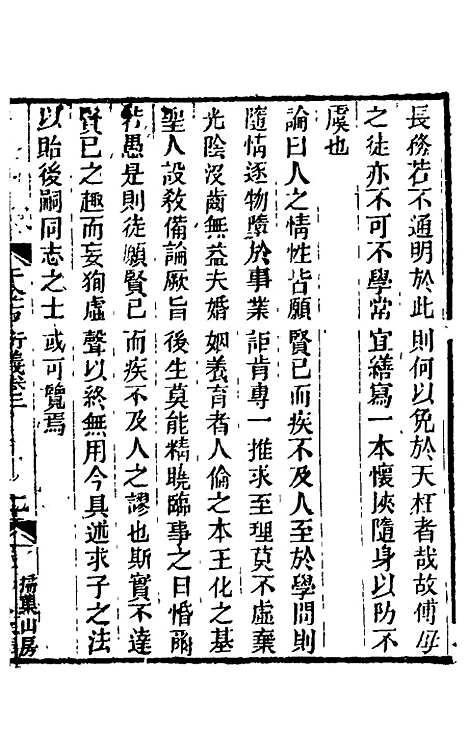 長務若不通明於此則何以免於夭枉者哉故傅母
之徒亦不可不學常宜繕寫一本懷挾隨身以防不
虞也
論曰人之情性皆願賢己而疾不及人至於學問則
隨情逐物墮於事業詎肯專一推求至理莫不虛棄
光陰沒齒無益夫婚姻養育者人倫之本王化之基
聖人設敎備論厥旨後生莫能精曉臨事之日惛爾
若愚是則徒願賢己而疾不及人之謬也斯實不達
賢己之趣而妄狥虛聲以終無用今具述求子之法
以貽後嗣同志之士或可覽焉
千金方衍義卷二
掃葉山房